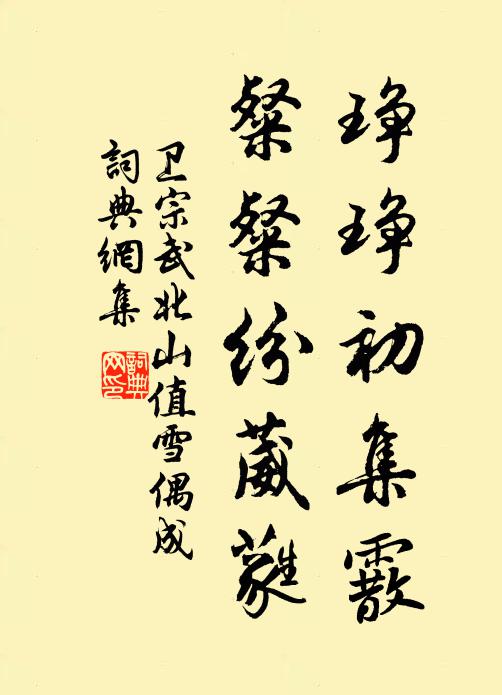 琤琤初集霰
粲粲纷葳蕤
卫宗武北山值雪偶成
詞典網集
詞典网印